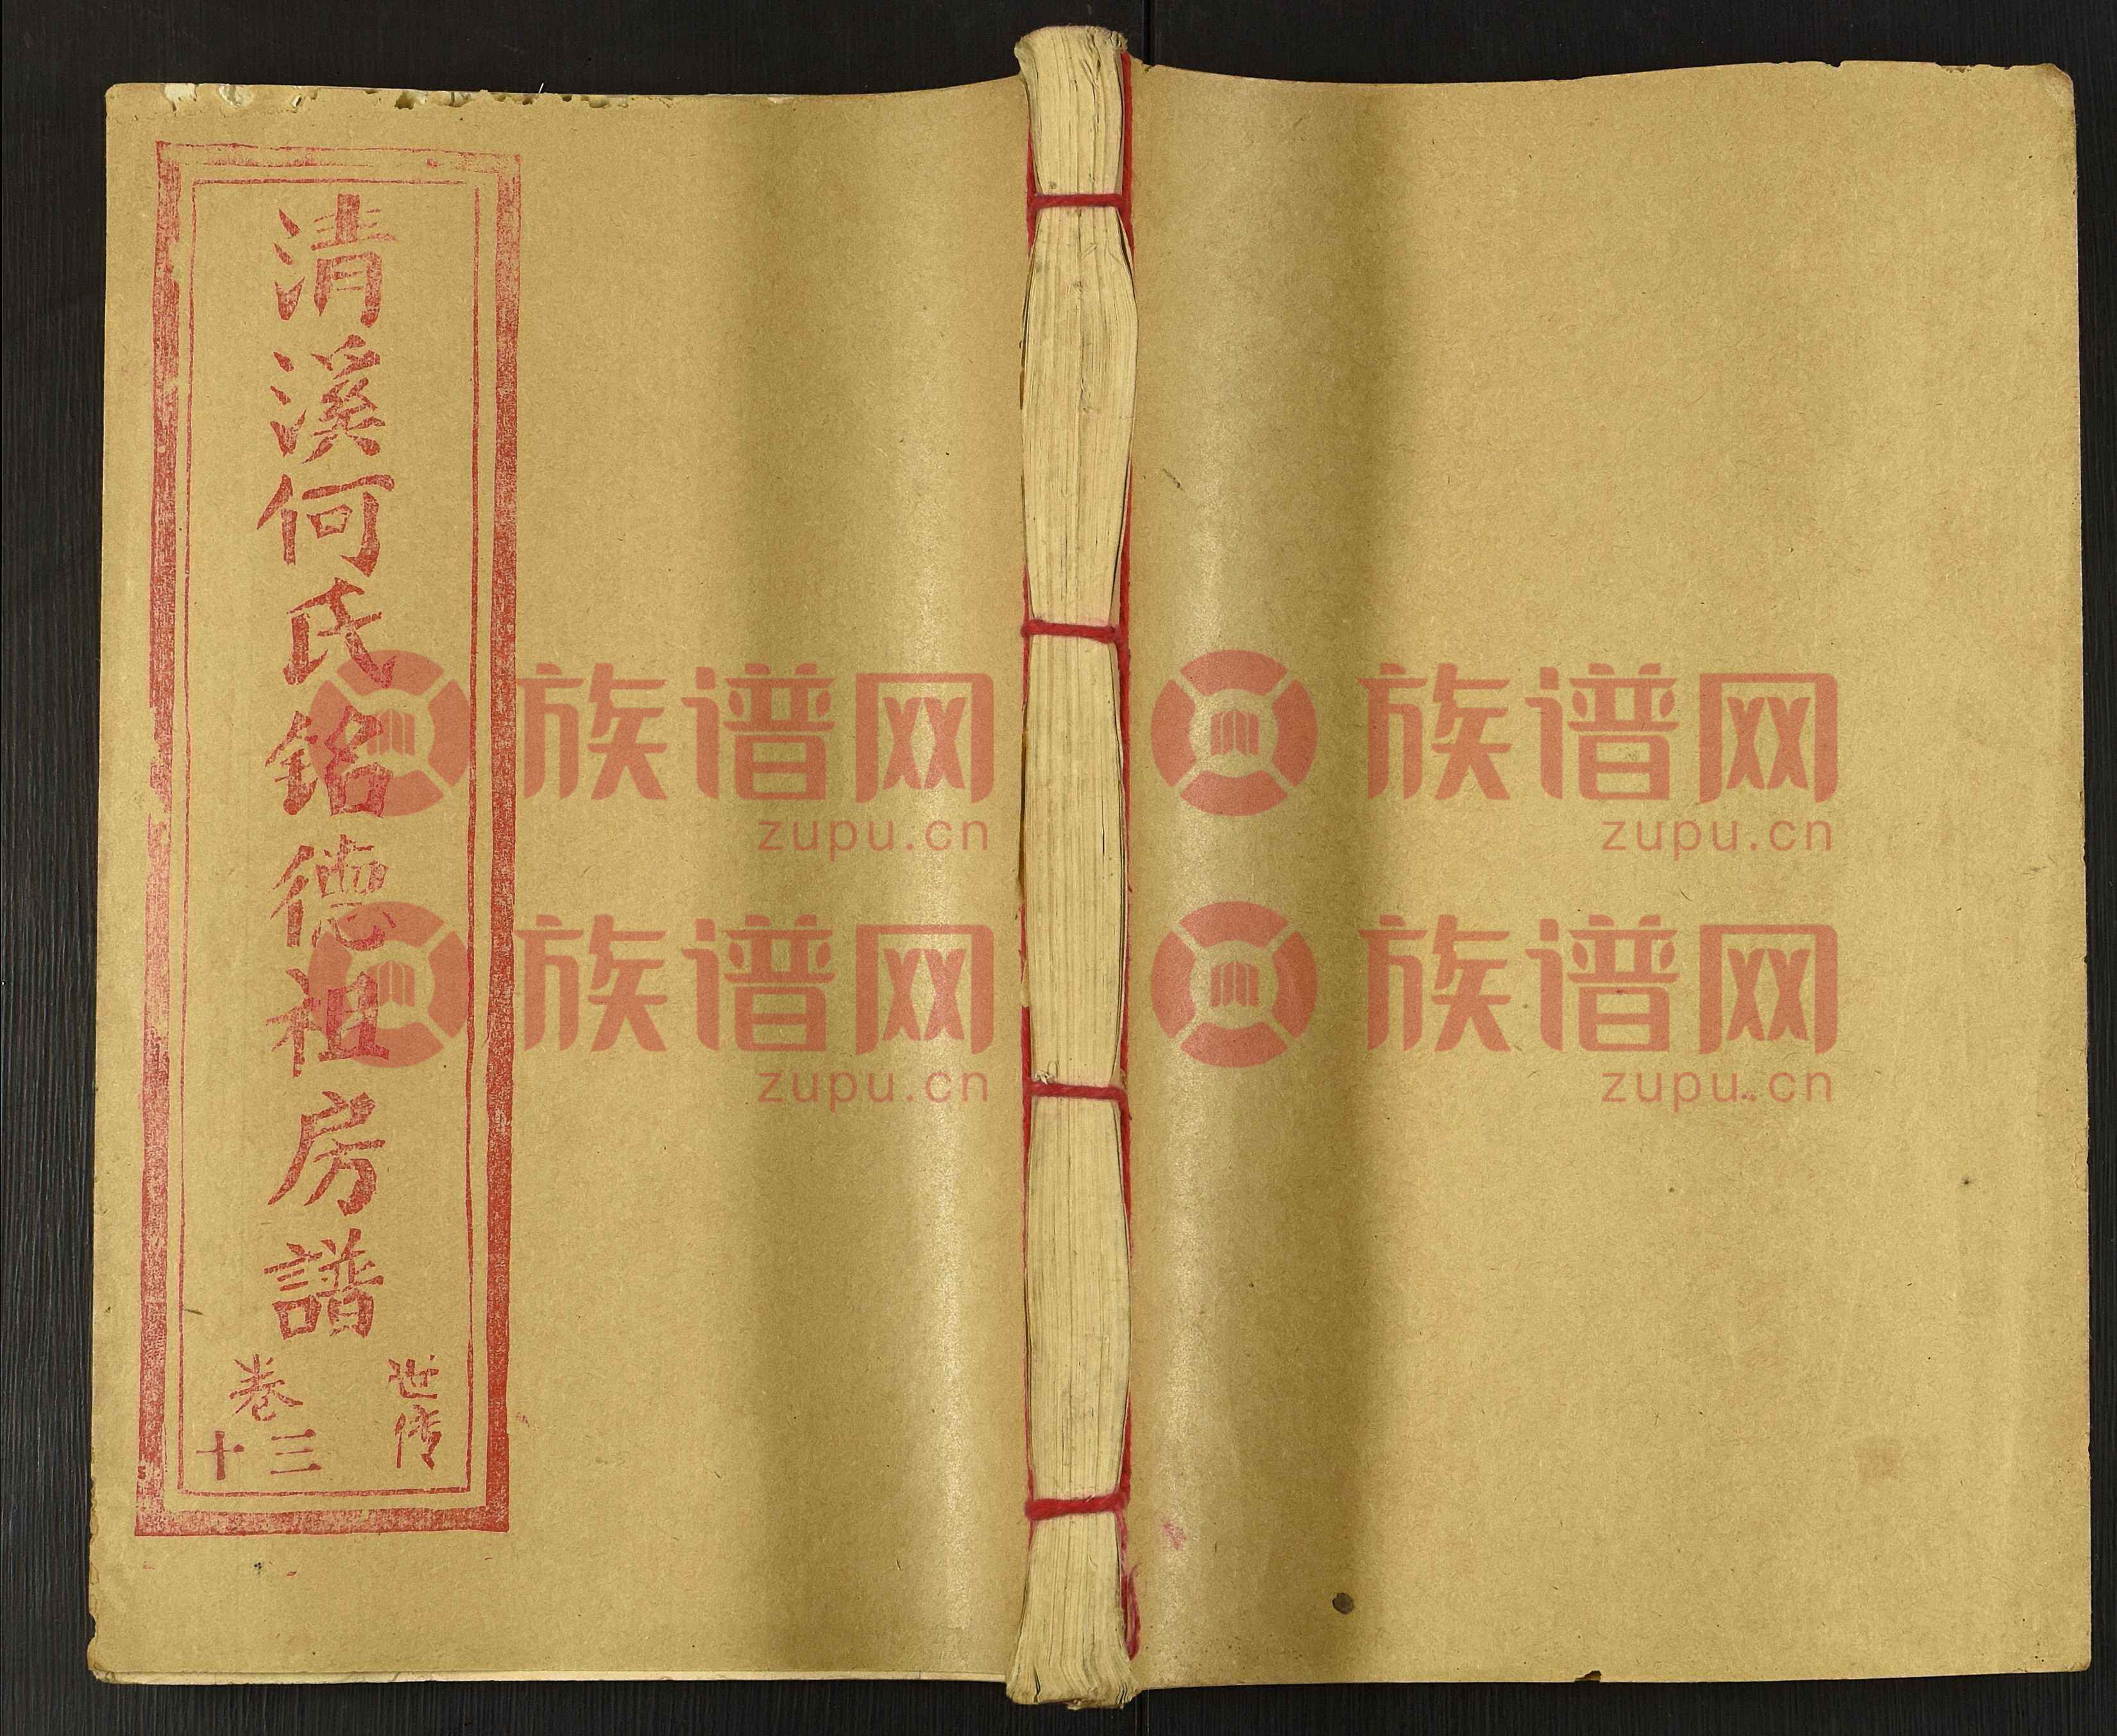 清溪何氏銘德祖房譜
世传
卷
十三
族谱网
zupu.cn
族谱网
zupu.cn
族谱网
zupu.cn
族谱网
zupu.cn